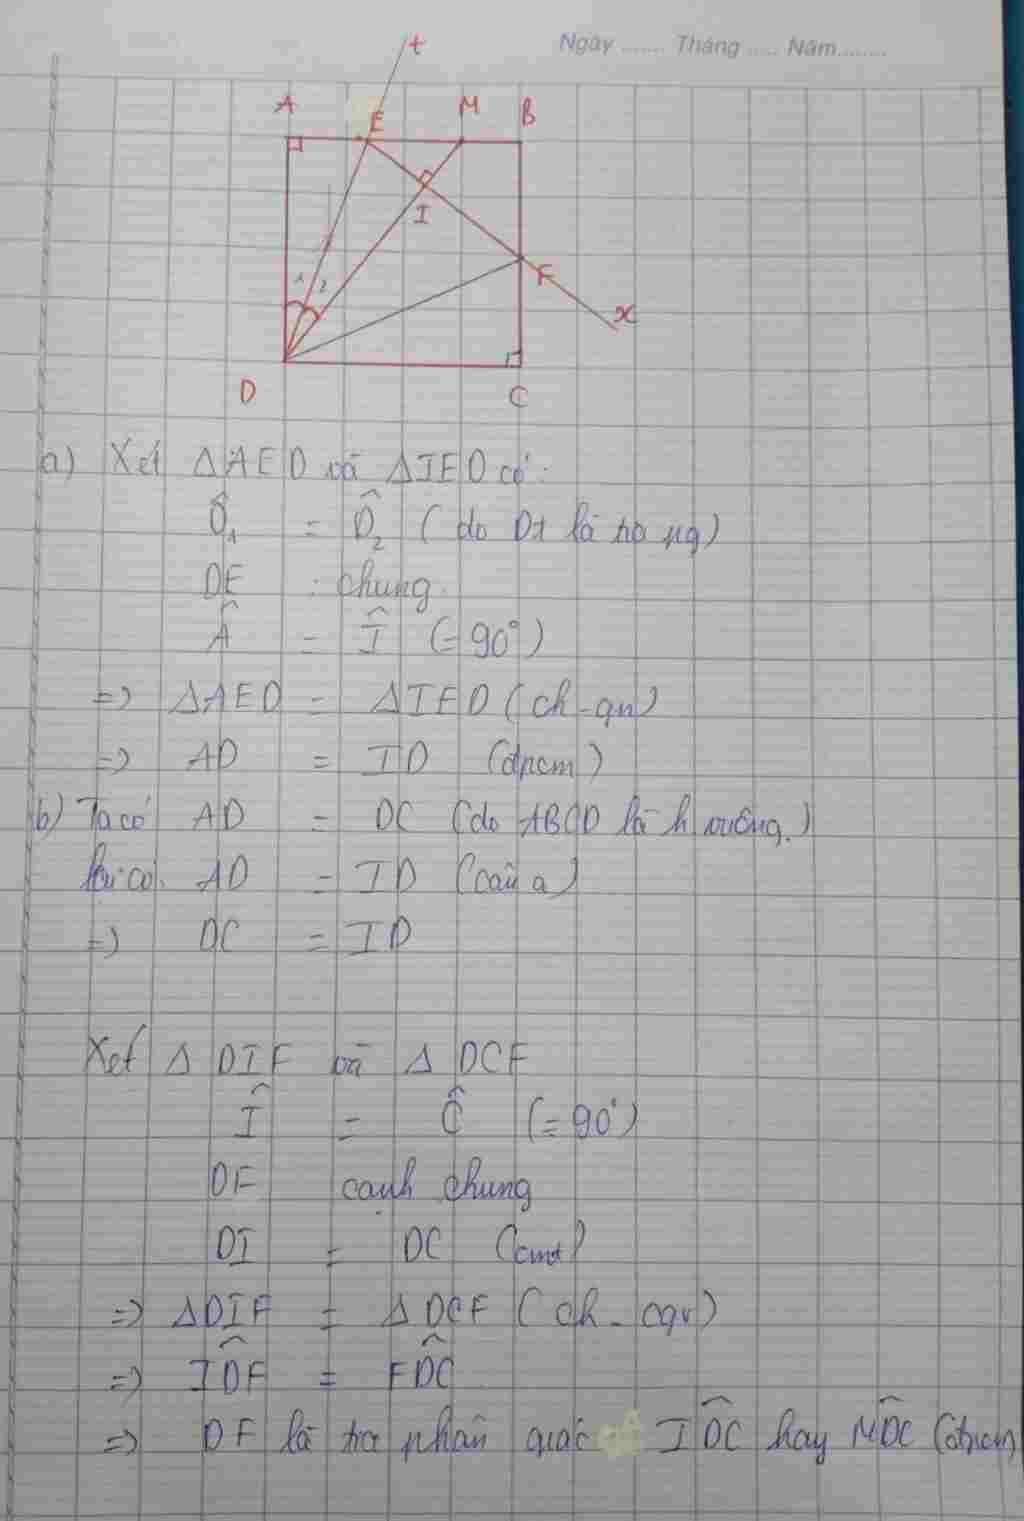 Ngày ....... Tháng ..... Năm ........
t
A E M B
I
1 2
F
x
D C
a) Xét ΔAED và ΔIED có:
D̂₁ = D̂₂ (do Dt là tia pg)
DE : chung
Â = Î (=90°)
=> ΔAED = ΔIED (ch-gn)
=> AD = ID (đpcm)
b) Ta có AD = DC (do ABCD là h vuông.)
lại có. AD = ID (câu a)
=> DC = ID
Xét Δ DIF và Δ DCF
Î = Ĉ (=90°)
DF cạnh chung
DI = DC (cmt)
=> ΔDIF = ΔDCF (ch-cgv)
=> ID̂F = FD̂C
=> DF là tia phân giác ID̂C hay MD̂C (đpcm)